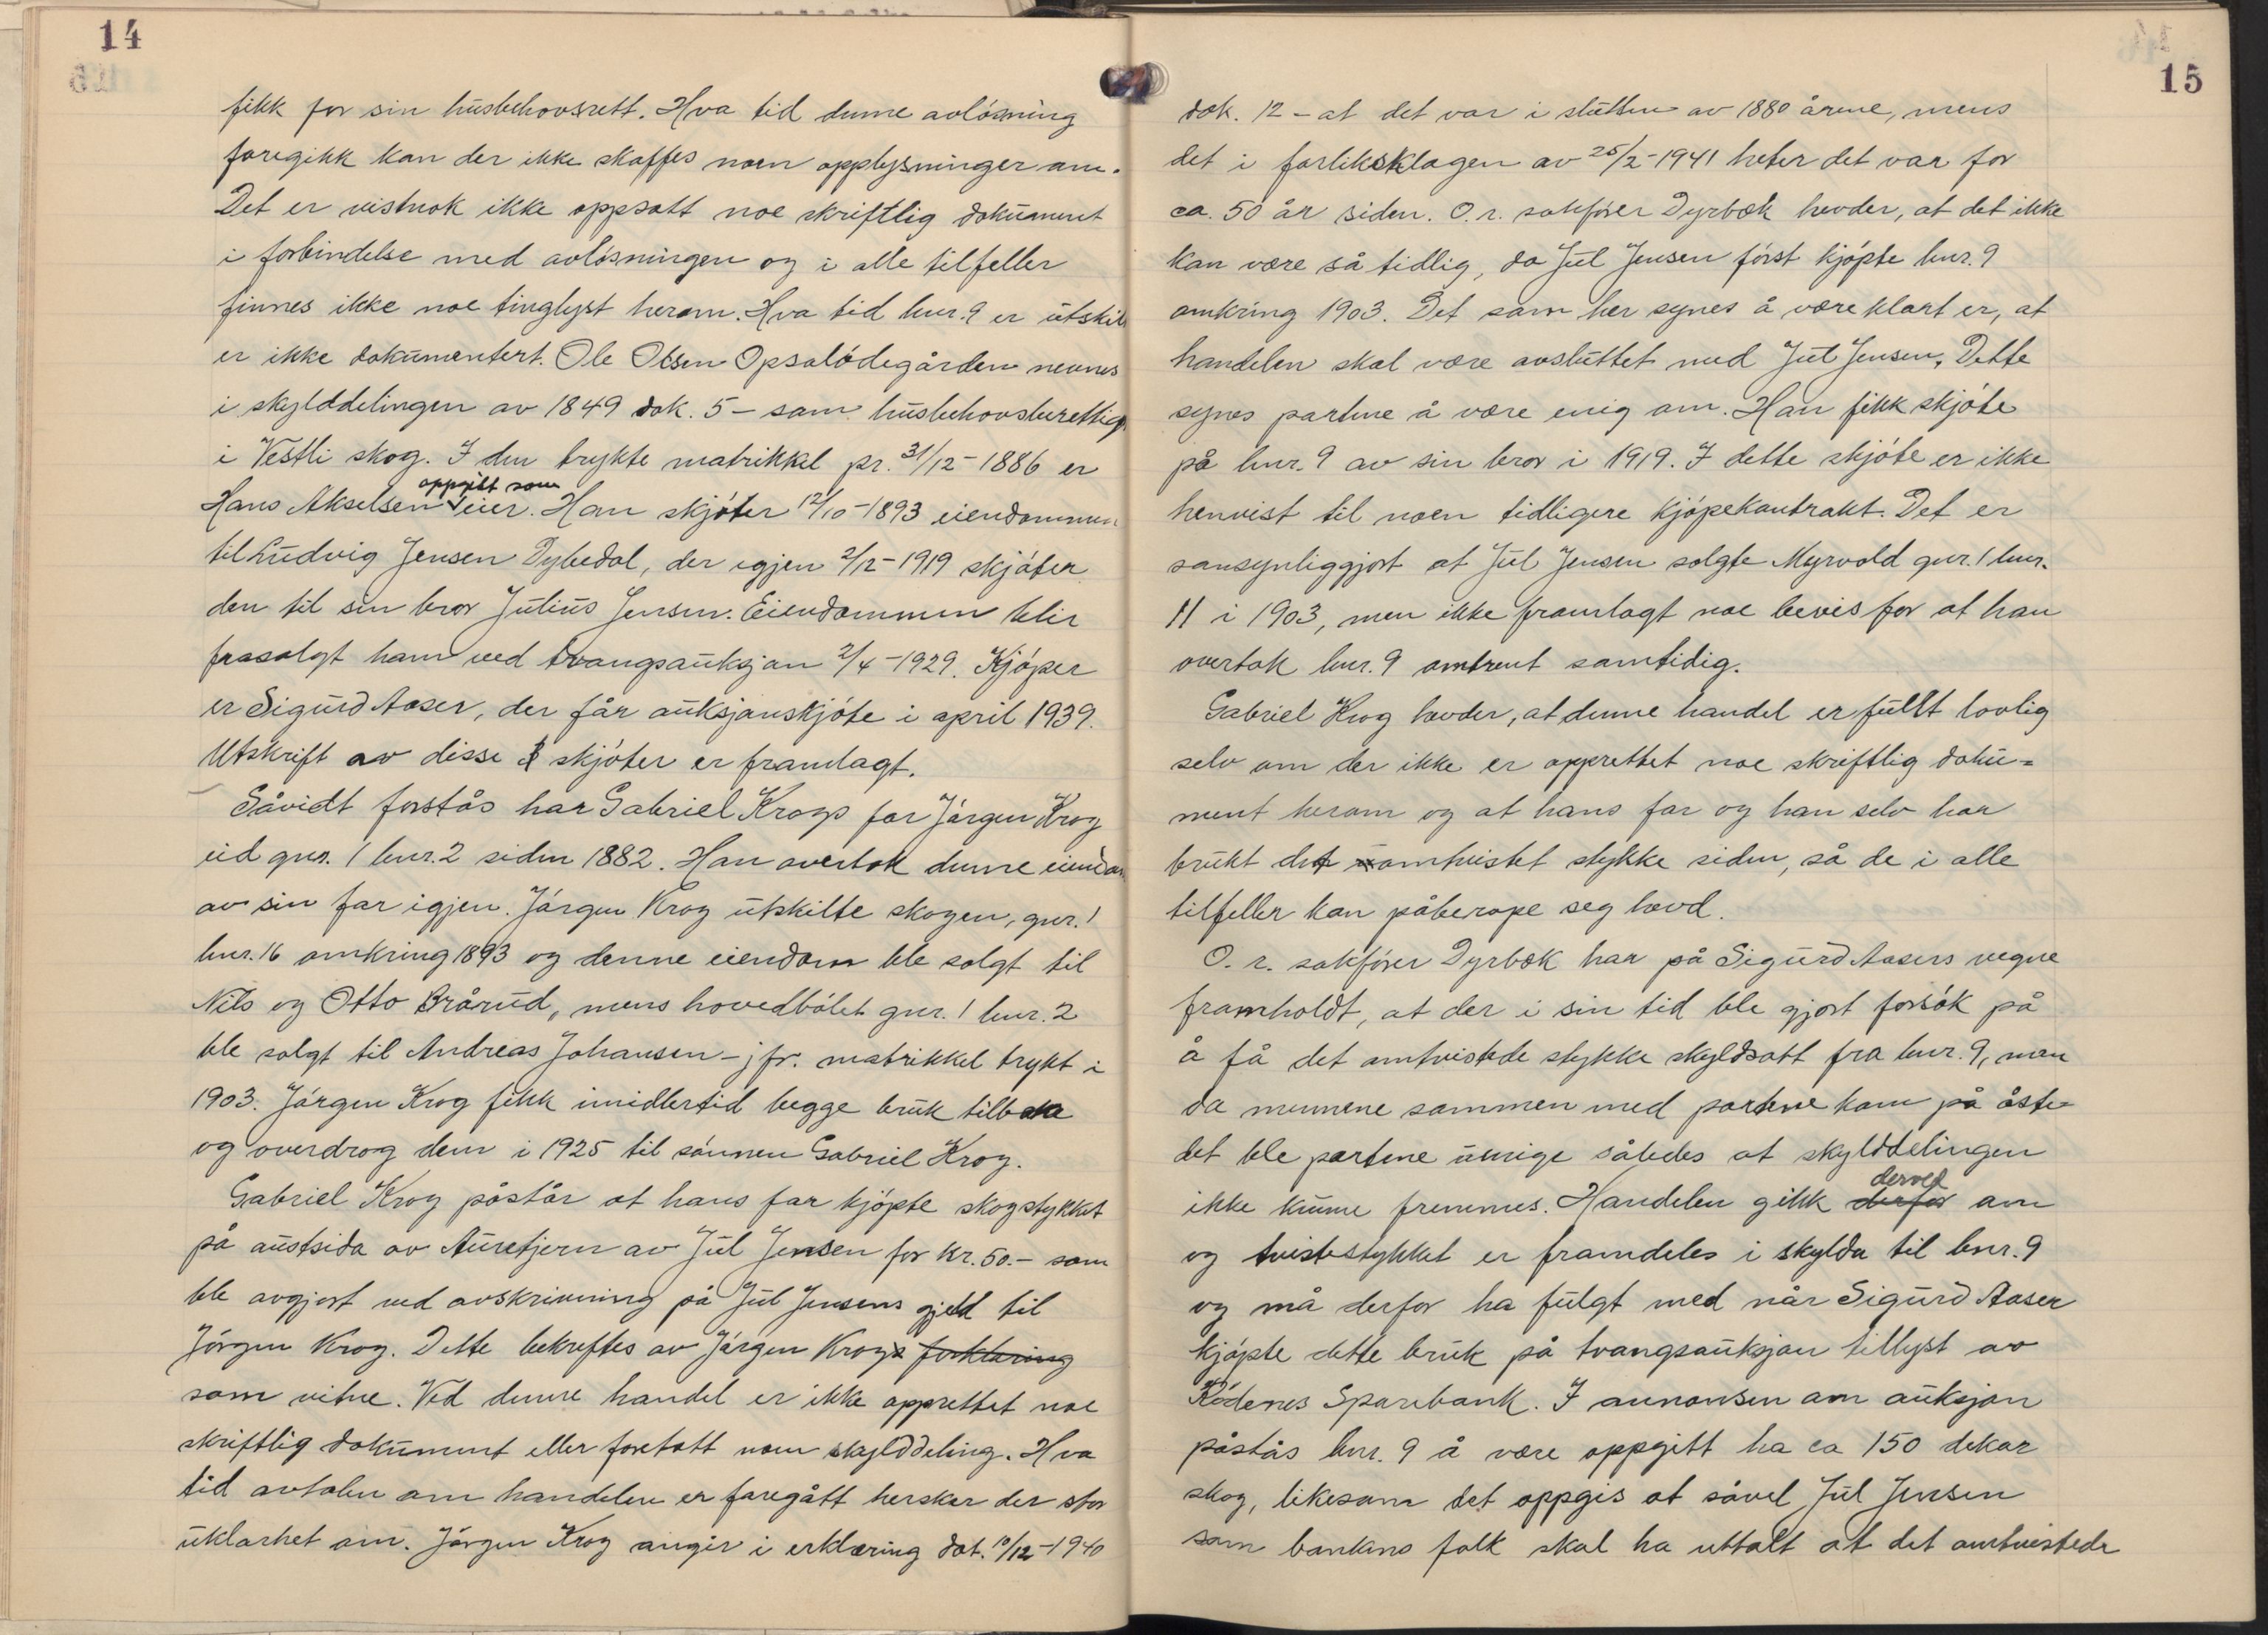 14
fikk for sin husbehovsrett. Hva tid denne avløsning
foregikk kan der ikke skaffes noen opplysninger om.
Det er vistnok ikke oppsatt noe skriftlig dokument
i forbindelse med avløsningen og i alle tilfeller
finnes ikke noe tinglyst herom. Hva tid bnr. 9 er utskilt
er ikke dokumentert. Ole Olsen Opsalødegården nevnes
i skylddelingen av 1849 dok. 5 - som husbehovsberettiget
i Vestli skog. I den trykte matrikkel pr. 31/12-1886 er
oppgitt som
Hans Akselsen eier. Han skjøter 12/10-1893 eiendommen
til Ludvig Jensen Dybedal, der igjen 2/12-1919 skjøter
den til sin bror Julius Jensen. Eiendommen blir
frasolgt ham ved tvangsauksjon 2/4-1929. Kjøper
er Sigurd Aaser, der får auksjonskjøte i april 1939.
Utskrift av disse 3 skjøter er framlagt.
Såvidt forstås har Gabriel Krogs far Jørgen Krog
eid gnr. 1 bnr. 2 siden 1882. Han overtok denne eiendom
av sin far igjen. Jørgen Krog utskilte skogen, gnr. 1
bnr. 16 omkring 1893 og denne eiendom ble solgt til
Nils og Otto Brårud, mens hovedbølet gnr. 1 bnr. 2
ble solgt til Andreas Johansen - jfr. matrikkel trykt i
1903. Jørgen Krog fikk imidlertid begge bruk tilbake
og overdrog dem i 1925 til sønnen Gabriel Krog.
Gabriel Krog påstår at hans far kjøpte skogstykket
på austsida av Auretjern av Jul Jensen for kr. 50.- som
ble avgjort ved avskrivning på Jul Jensens gjeld til
Jörgen Krog. Dette bekreftes av Jørgen Krogs forklaring
som vitne. Ved denne handel er ikke opprettet noe
skriftlig dokument eller foretatt noen skylddeling. Hva
tid avtalen om handelen er foregått hersker der stor
uklarhet om. Jørgen Krog angir i erklæring dat. 10/12-1940
15
dok. 12 - at det var i slutten av 1880 årene, mens
det i forliksklagen av 25/2-1941 heter det var for
ca. 50 år siden. O.r. sakfører Dyrbæk hevder, at det ikke
kan være så tidlig, da Jul Jensen først kjøpte bnr. 9
omkring 1903. Det som her synes å være klart er, at
handelen skal være avsluttet med Jul Jensen. Dette
synes partene å være enig om. Han fikk skjøte
på bnr. 9 av sin bror i 1919. I dette skjøte er ikke
henvist til noen tidligere kjøpekontrakt. Det er
sansynliggjort at Jul Jensen solgte Myrvold gnr. 1 bnr.
11 i 1903, men ikke framlagt noe bevis for at han
overtok bnr. 9 omtrent samtidig.
Gabriel Krog hevder, at denne handel er fullt lovlig
selv om der ikke er opprettet noe skriftlig doku=
ment herom og at hans far og han selv har
brukt det omtvistet stykke siden, så de i alle
tilfeller kan påberope seg hevd.
O.r. sakfører Dyrbæk har på Sigurd Aasers vegne
framholdt, at der i sin tid ble gjort forsøk på
å få det omtvistede stykke skyldsatt fra bnr. 9, men
da mennene sammen med partene kom på åste-
det ble partene uenige således at skylddelingen
derved
ikke kunne fremmes. Handelen gikk derfor om
og tvistestykket er framdeles i skylda til bnr. 9
og må derfor ha fulgt med når Sigurd Aaser
kjøpte dette bruk på tvangsauksjon tillyst av
Rødenes Sparebank. I annonsen om auksjon
påstås bnr. 9 å være oppgitt ha ca 150 dekar
skog, likesom det oppgis at såvel Jul Jensen
som bankens folk skal ha uttalt at det omtvistede